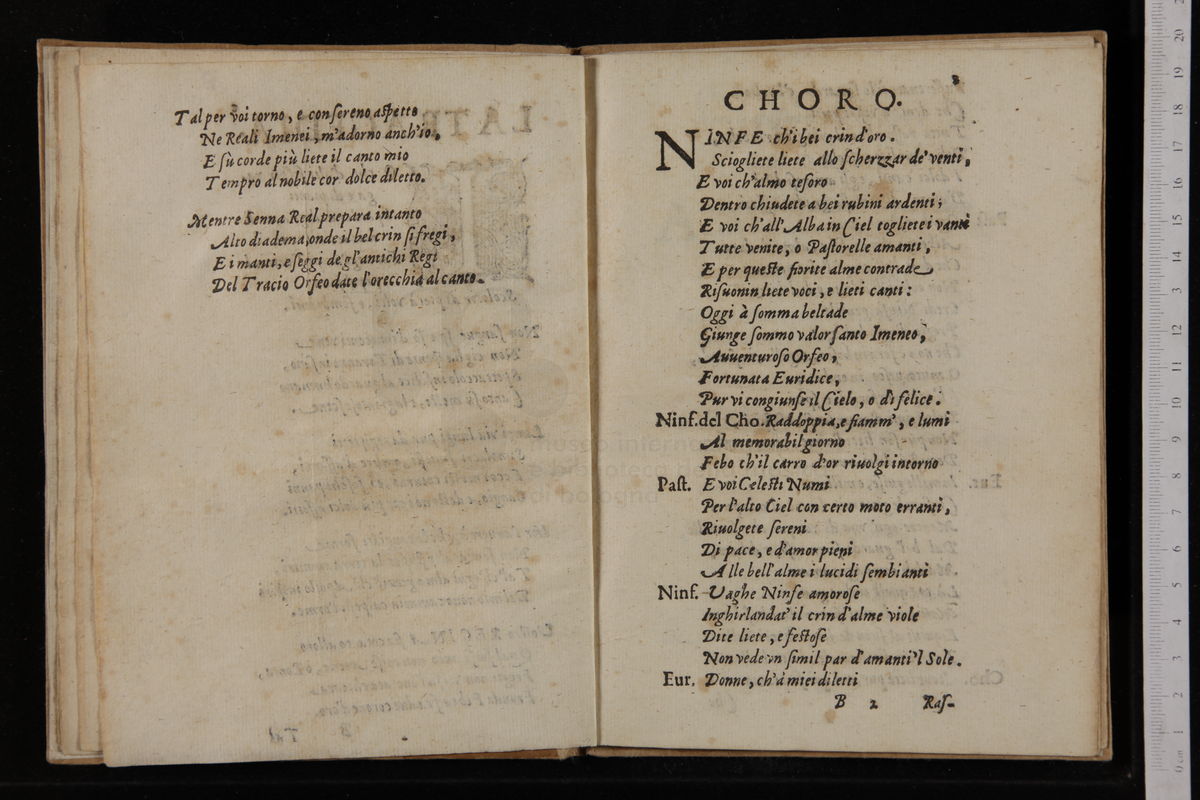 Tal per voi torno, e con sereno aspetto
Ne Reali Imenei, m'adorno anch'io,
E sù corde più liete il canto mio
Tempro al nobile cor dolce diletto.
Mentre Senna Real prepara intanto
Alto diadema, onde il bel crin si fregi,
E i manti, e seggi de gl'antichi Regi
Del Tracio Orfeo date l'orecchia al canto.
CHORO.
NINFE ch'i bei crin d'oro.
Sciogliete liete allo scherzzar de' venti,
E voi ch'almo tesoro
Dentro chiudete a bei rubini ardenti;
E voi ch'all'Alba in Ciel togliete i vanti
Tutte venite, o Pastorelle amanti,
E per queste fiorite alme contrade
Risuonin liete voci, e lieti canti:
Oggi à somma beltade
Giunge sommo valor santo Imeneo,
Auuenturoso Orfeo,
Fortunata Euridice,
Pur vi congiunse il Cielo, o dì felice.
Ninf. del Cho. Raddoppia, e fiamm', e lumi
Al memorabil giorno
Febo ch'il carro d'or riuolgi intorno
Past. E voi Celesti Numi
Per l'alto Ciel con certo moto erranti,
Riuolgete sereni
Di pace, e d'amor pieni
Alle bell'alme i lucidi sembianti
Ninf. Vaghe Ninfe amorose
Inghirlandat' il crin d'alme viole
Dite liete, e festose
Non vede vn simil par d'amanti'l Sole.
Eur. Donne, ch'à miei diletti
B 2 Ras-